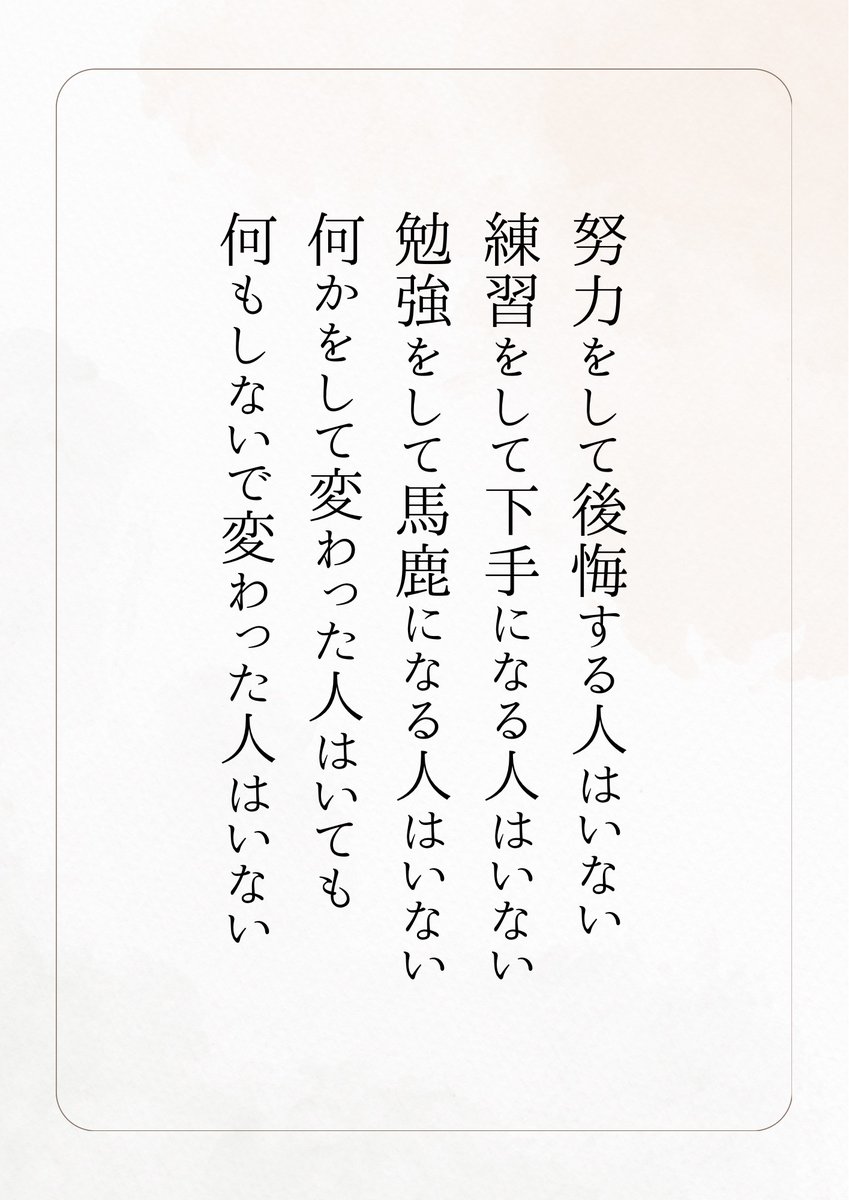 努力をして後悔する人はいない
練習をして下手になる人はいない
勉強をして馬鹿になる人はいない
何かをして変わった人はいても
何もしないで変わった人はいない